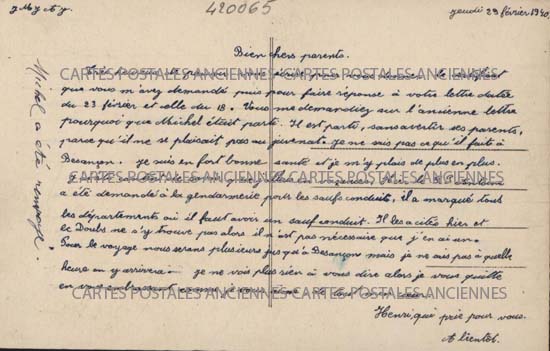 J.M.J. et J.
420065
jeudi 29 février 1940
Bien chers parents.
que vous m'avez demandé puis pour faire réponse à votre lettre datée
du 23 février et celle du 18. Vous me demandiez sur l'ancienne lettre
pourquoi que Michel était parti. Il est parti, sans avertir ses parents,
parce qu'il ne se plaisait pas au juvenat. Je ne sais pas ce qu'il fait à
Besançon. je suis en fort bonne santé et je m'y plais de plus en plus.
a été demandé à la gendarmerie pour les saufs conduits, il a marqué tous
les départements où il faut avoir un sauf conduit. Il les a cités hier et
le Doubs ne s'y trouve pas alors il n'est pas nécessaire que j'en ai un.
Pour le voyage nous serons plusieurs jusqu'à Besançon mais je ne sais pas à quelle
heure on y arrivera. je ne vois plus rien à vous dire alors je vous quitte
en vous embrassant
Henri, qui prie pour vous.
A bientôt.
Michel a été renvoyé.
CARTES POSTALES ANCIENNES CARTES POSTALES ANCIENNES
CARTES POSTALES ANCIENNES CARTES POSTALES ANCIENNES
CARTES POSTALES ANCIENNES CARTES POSTALES ANCIENNES